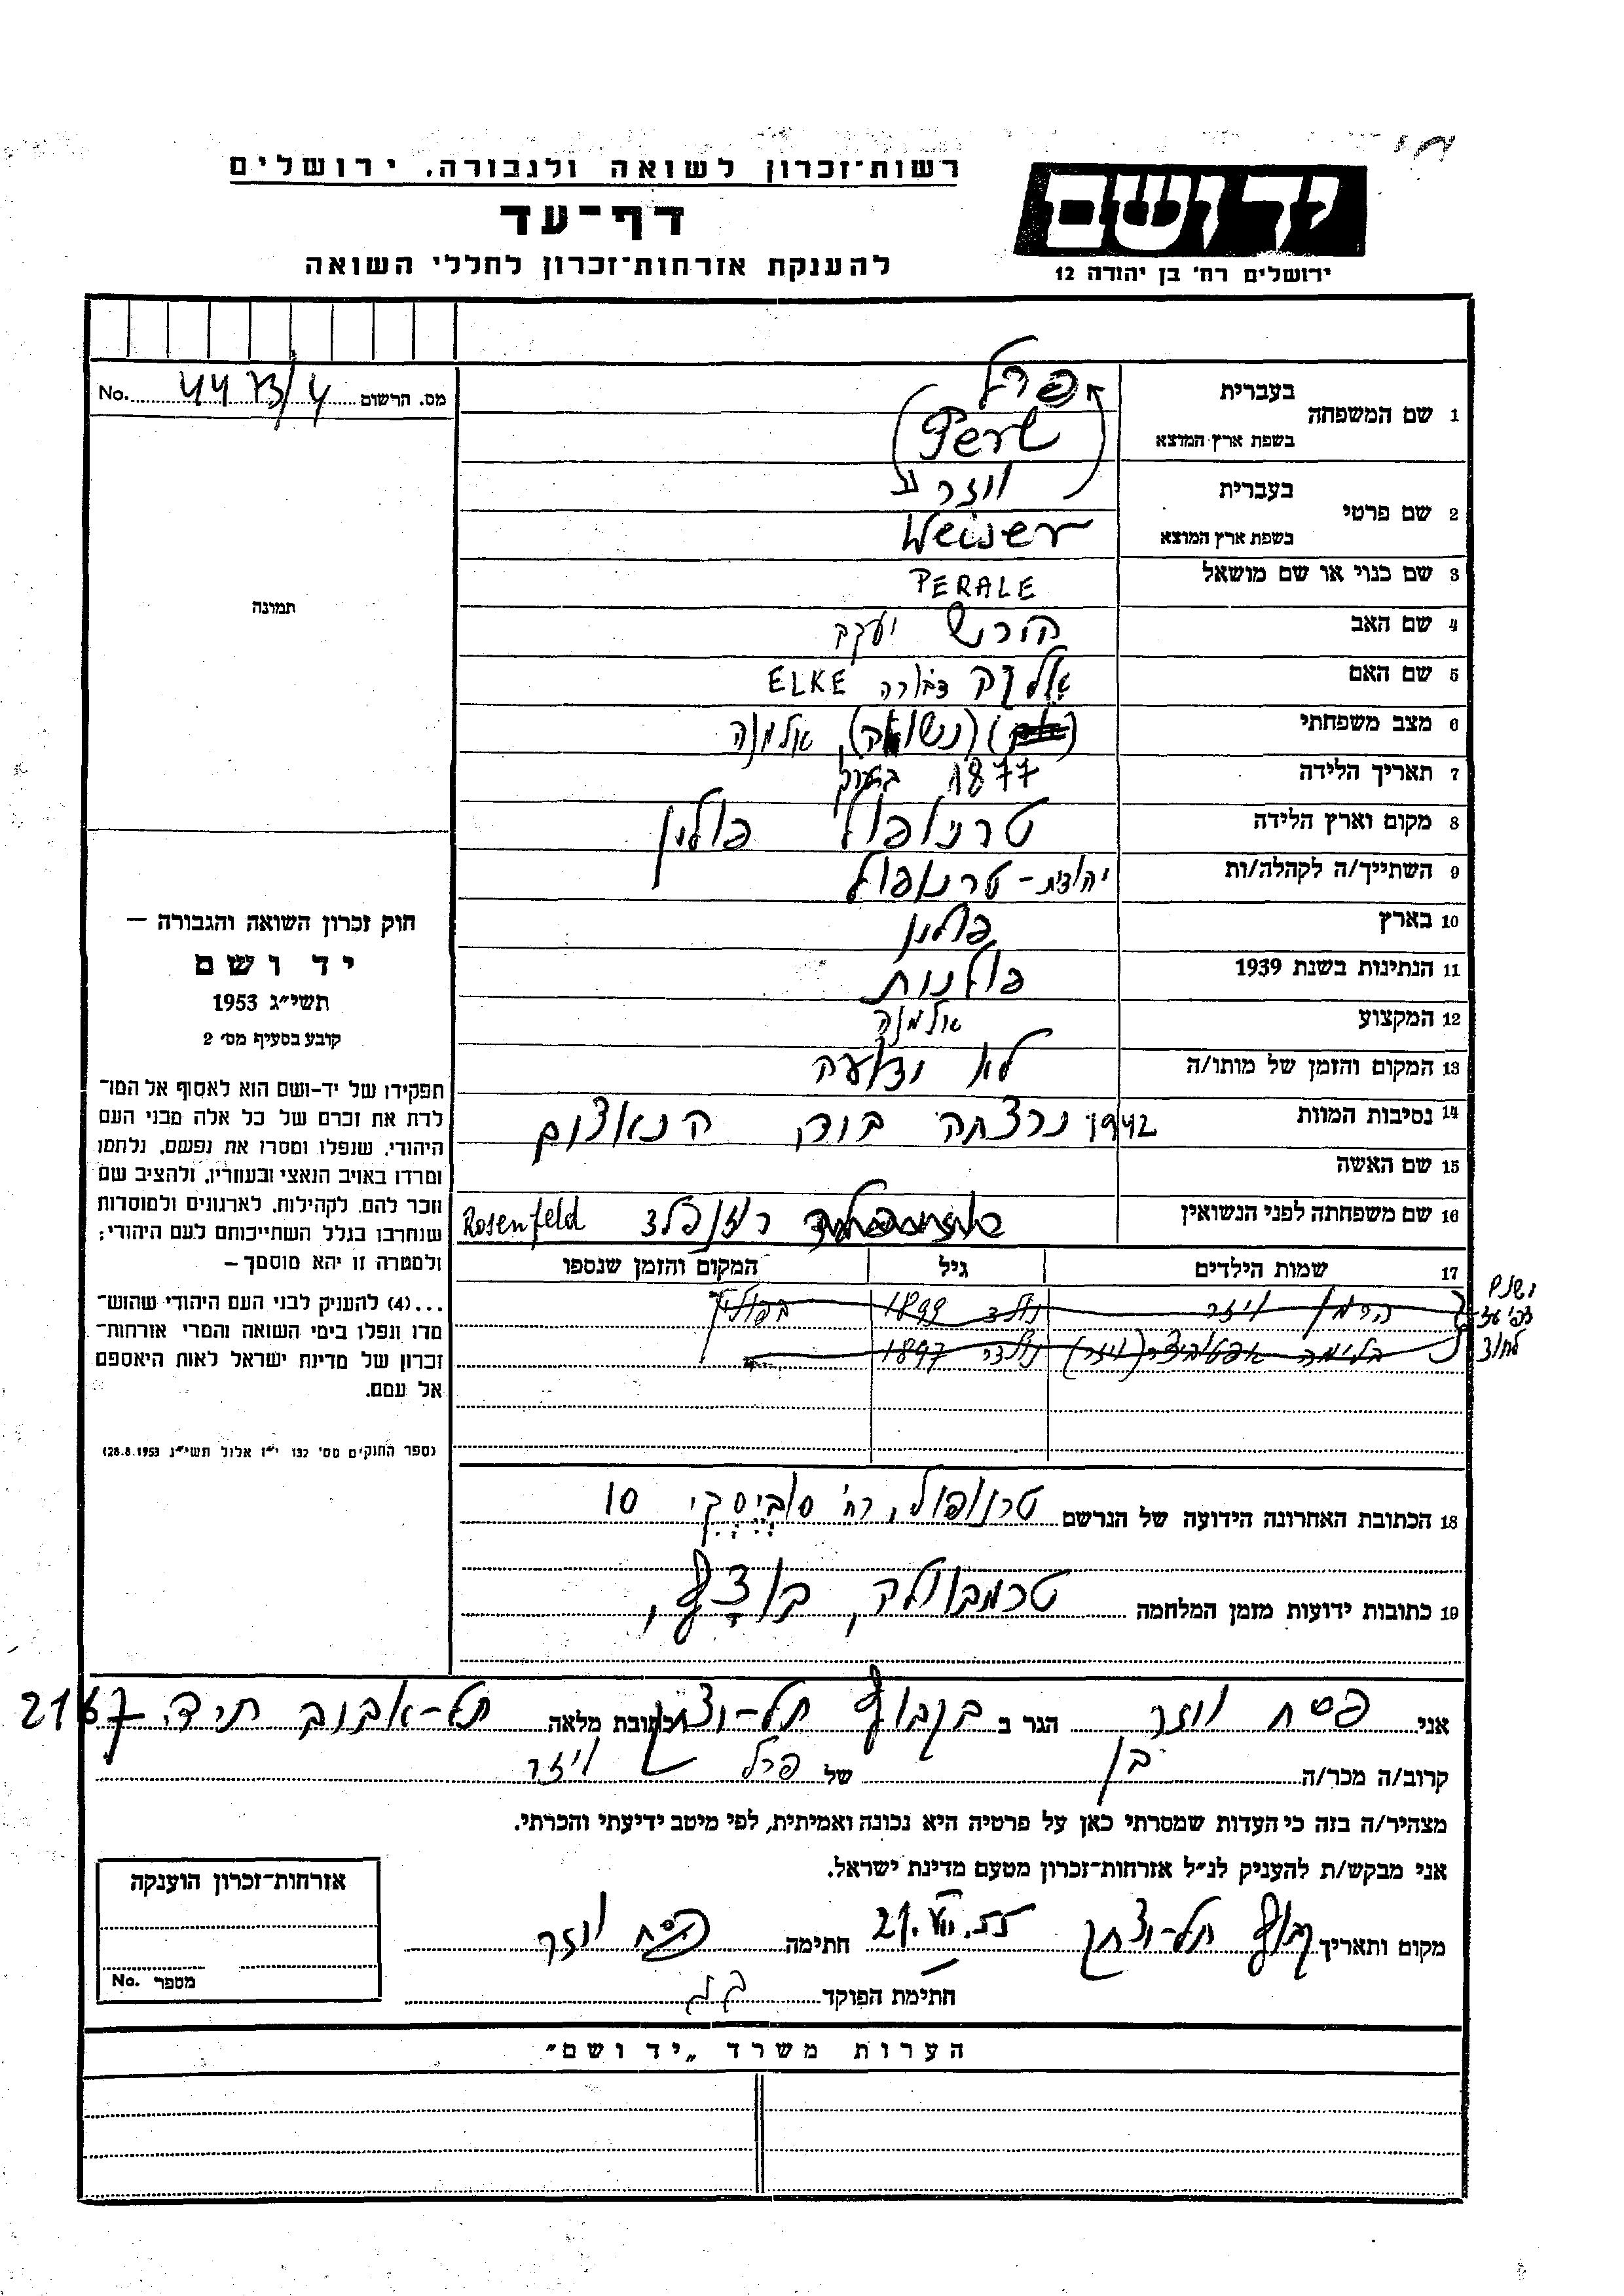 רשות־זכרון לשואה ולגבורה. ירושלים
דף־עד
להענקת אזרחות־זכרון לחללי השואה
יד ושם
ירושלים רח' בן יהודה 12
מס. הרשום 4473/4 No.
1 שם המשפחה
בעברית פרל
בשפת ארץ המוצא Perl
2 שם פרטי
בעברית ויזר
בשפת ארץ המוצא Weiser
3 שם כנוי או שם מושאל PERALE
4 שם האב הירש יעקב
5 שם האם אלקה דבורה ELKE
6 מצב משפחתי (נשואה) אלמנה
7 תאריך הלידה 1877 בערך
8 מקום וארץ הלידה טרנופול פולין
9 השתייך/ה לקהלה/ות יהודית - טרנופול
10 בארץ פולין
11 הנתינות בשנת 1939 פולנית
12 המקצוע אלמנה
13 המקום והזמן של מותו/ה לא נודעה
14 נסיבות המוות 1942 נרצחה בידי הנאצים
15 שם האשה
16 שם משפחתה לפני הנשואין רוזנפלד Rosenfeld
17 שמות הילדים גיל המקום והזמן שנספו
הרמן ויזר נולד 1899 בפולין
(ויזר) נולדה 1897
18 הכתובת האחרונה הידועה של הנרשם טרנופול, רח' סוביסקי 10
19 כתובות ידועות מזמן המלחמה
תמונה
חוק זכרון השואה והגבורה –
יד ושם
תשי״ג 1953
קובע בסעיף מס׳ 2
תפקידו של יד־ושם הוא לאסוף אל המו־
לדת את זכרם של כל אלה מבני העם
היהודי, שנפלו ומסרו את נפשם, נלחמו
ומרדו באויב הנאצי ובעוזריו, ולהציב שם
וזכר להם, לקהילות, לארגונים ולמוסדות
שנחרבו בגלל השתייכותם לעם היהודי;
ולמטרה זו יהא מוסמך –
...(4) להעניק לבני העם היהודי שהוש־
מדו ונפלו בימי השואה והמרי אזרחות־
זכרון של מדינת ישראל לאות היאספם
אל עמם.
(ספר החוקים מס׳ 132 י״ז אלול תשי״ג 28.8.1953)
אני פסח ויזר הגר ב קבוץ תל-יצחק כתובת מלאה תל-אביב ת.ד. 2167
קרוב/ה מכר/ה בן של פרל ויזר
מצהיר/ה בזה כי העדות שמסרתי כאן על פרטיה היא נכונה ואמיתית, לפי מיטב ידיעתי והכרתי.
אני מבקש/ת להעניק לנ״ל אזרחות־זכרון מטעם מדינת ישראל.
מקום ותאריך קבוץ תל-יצחק 21.VII.55 חתימה פסח ויזר
חתימת הפוקד
אזרחות־זכרון הוענקה
מספר No.
הערות משרד „יד ושם״